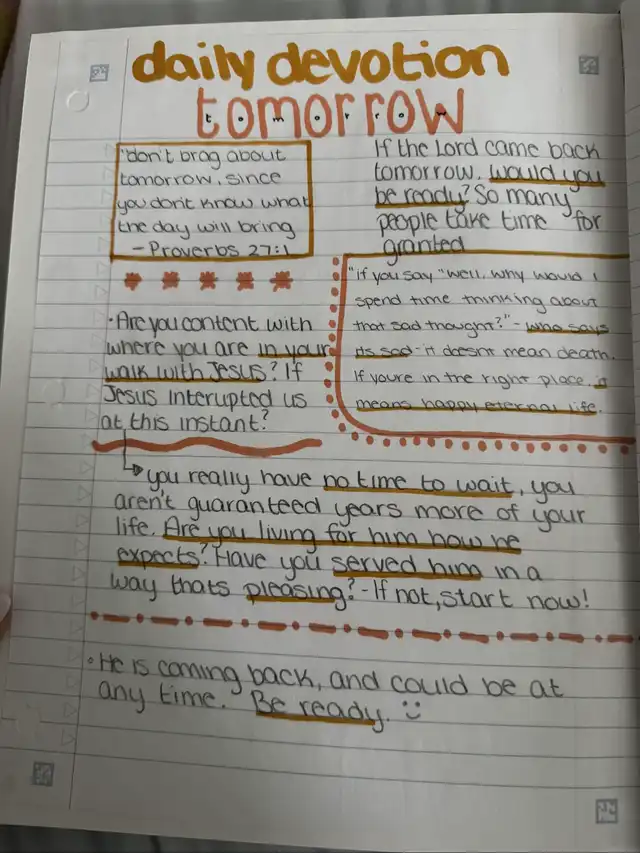 daily devotion
tomorrow
"don't brag about
tomorrow, since
you don't know what
the day will bring
- Proverbs 27:1
If the Lord came back
tomorrow, would you
be ready? So many
people take time for
granted
"if you say "well, why would I
spend time thinking about
that sad thought?" - who says
its sad - it doesnt mean death.
If youre in the right place, it
means happy eternal life.
• Are you content with
where you are in your
walk with Jesus? If
Jesus interupted us
at this instant?
you really have no time to wait, you
aren't guaranteed years more of your
life. Are you living for him how he
expects? Have you served him in a
way thats pleasing? - If not, start now!
• He is coming back, and could be at
any time. Be ready. :)